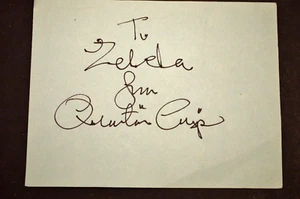 To
Zelda
from
Quentin Crisp